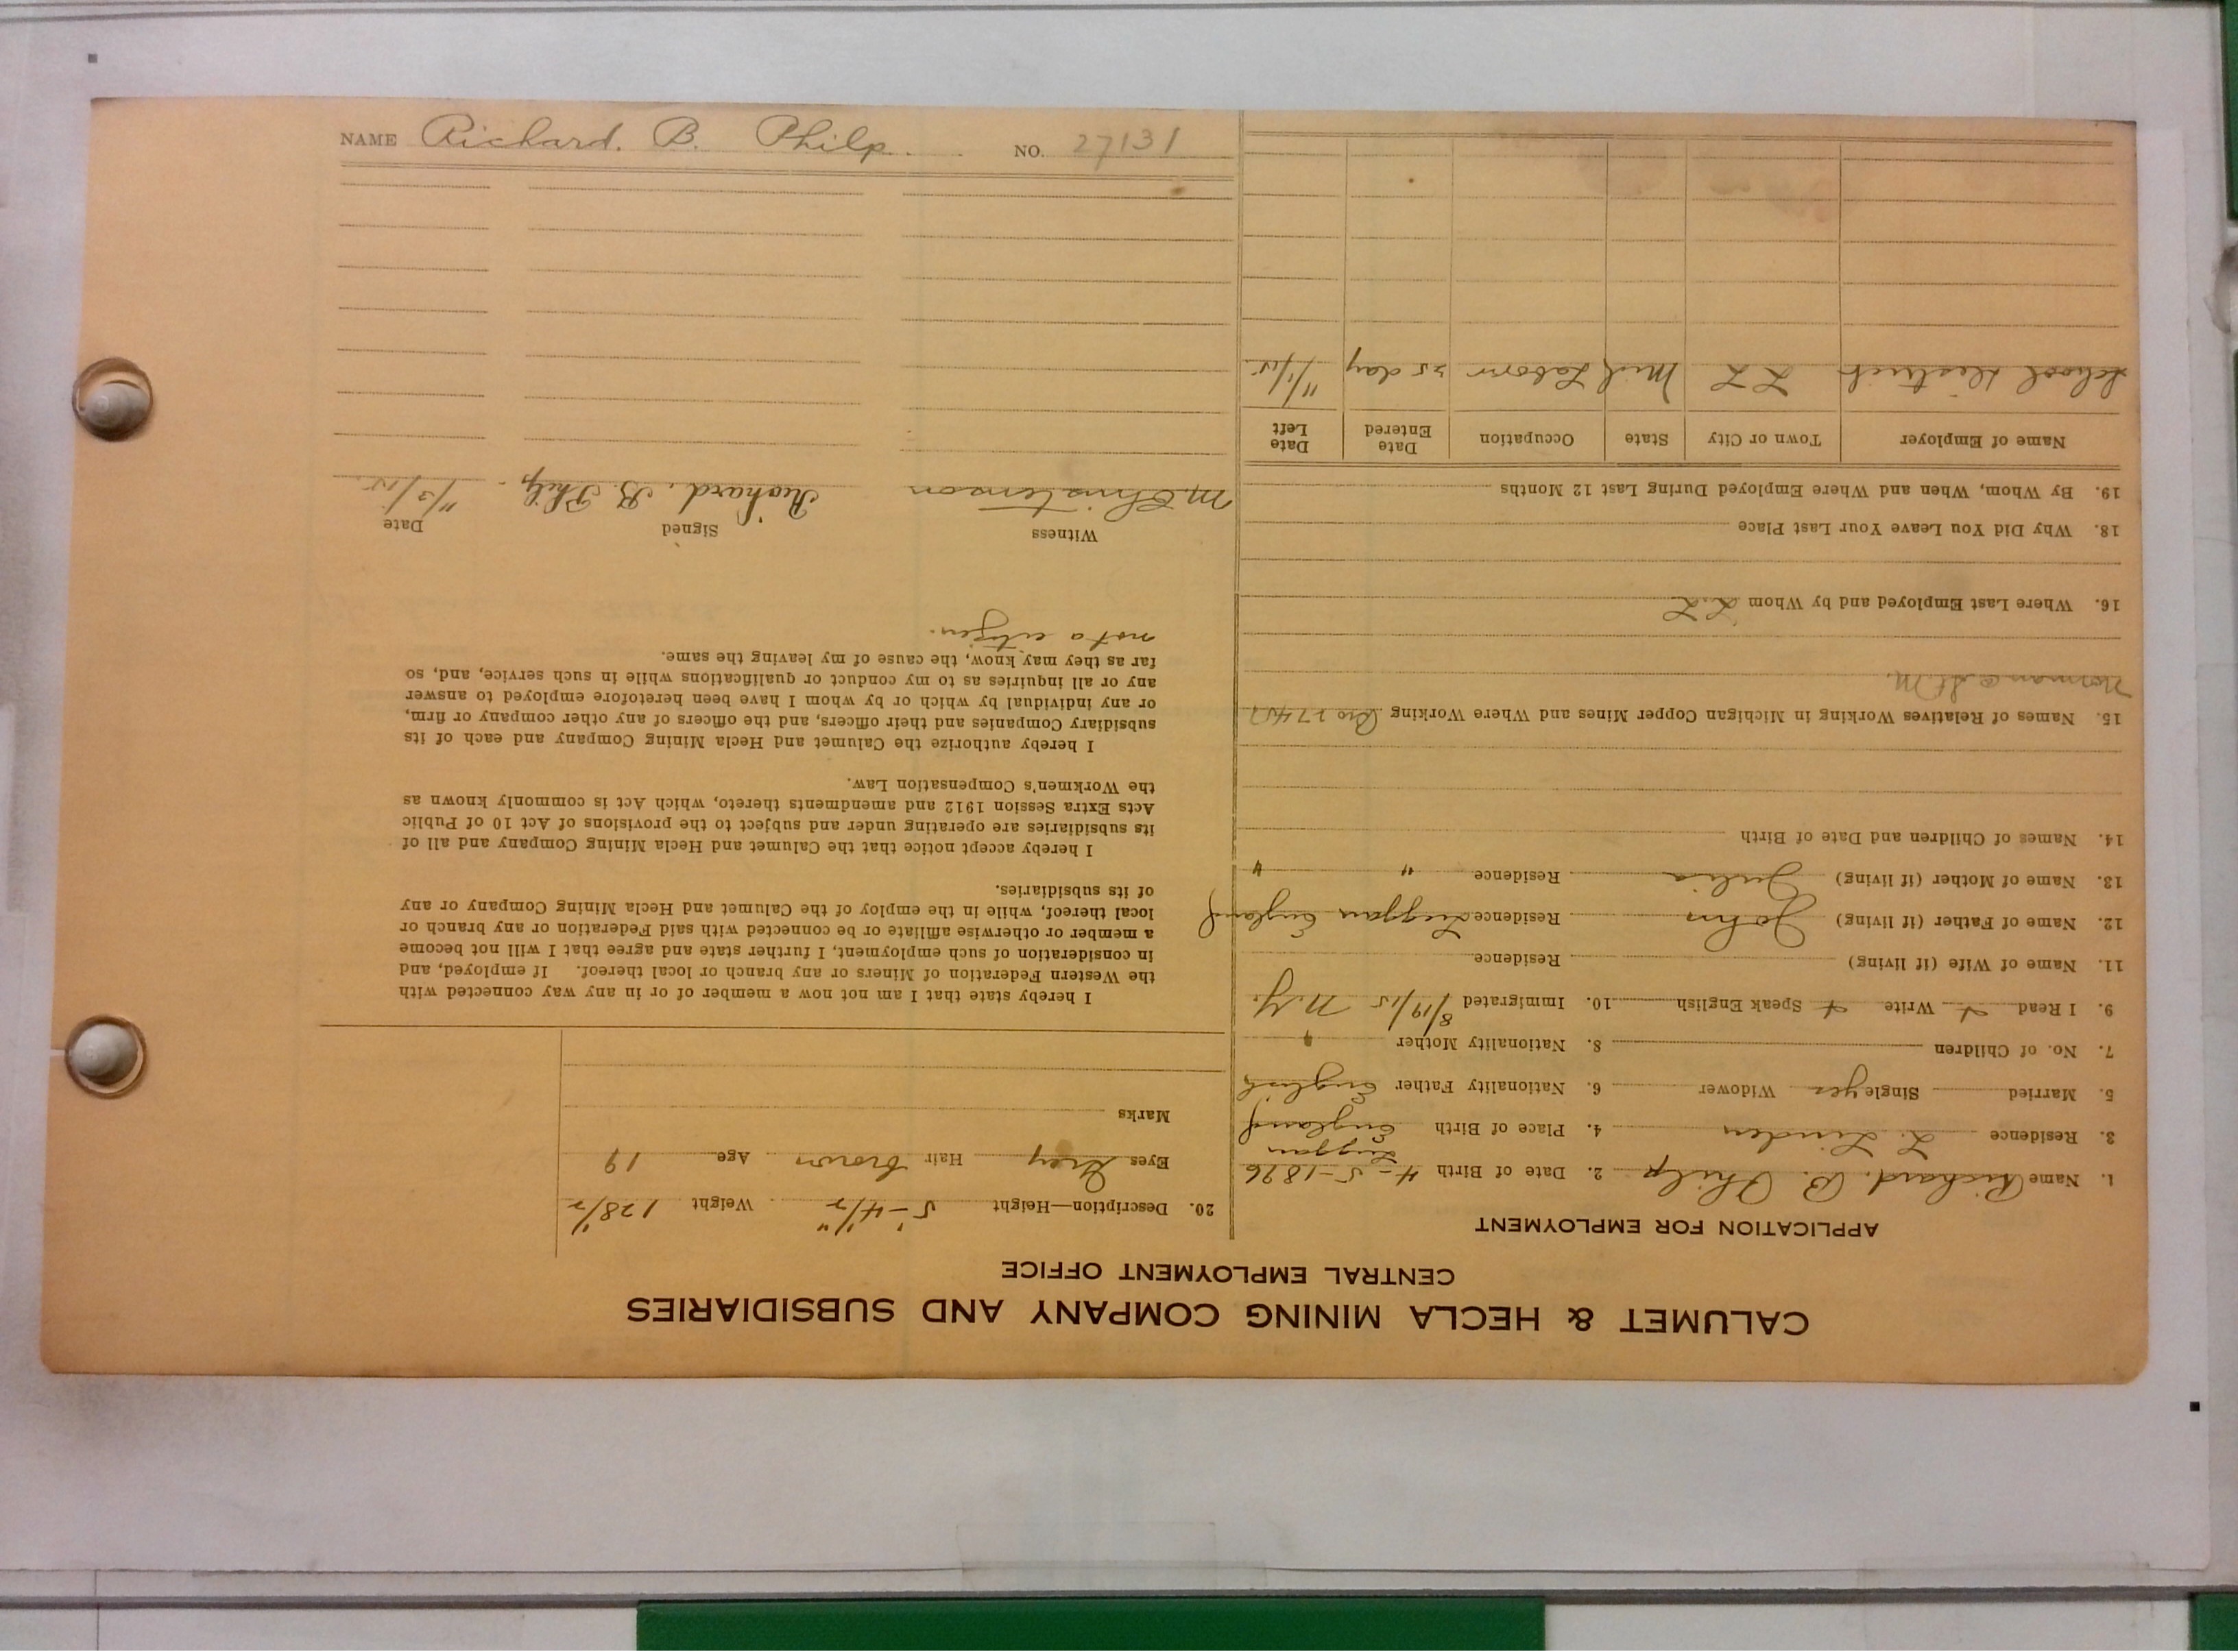 NAME Richard. B. Philp. NO. 27131
CALUMET & HECLA MINING COMPANY AND SUBSIDIARIES
CENTRAL EMPLOYMENT OFFICE
APPLICATION FOR EMPLOYMENT
1. Name Richard. B. Philp 2. Date of Birth 4-5-1896
3. Residence L. Linden 4. Place of Birth Luggan England
5. Married Single yes Widower 6. Nationality Father English
7. No. of Children 8. Nationality Mother "
9. I Read Write + Speak English 10. Immigrated 8/19/15 N.Y.
11. Name of Wife (if living) Residence
12. Name of Father (if living) John Residence Luggan England
13. Name of Mother (if living) Julia Residence " "
14. Names of Children and Date of Birth
15. Names of Relatives Working in Michigan Copper Mines and Where Working Bro 27457
Norman
16. Where Last Employed and by Whom L.L.
18. Why Did You Leave Your Last Place
19. By Whom, When and Where Employed During Last 12 Months
Name of Employer Town or City State Occupation Date Entered Date Left
School District L L Mich Labour 25 day 11/1/15
20. Description—Height 5'-4 1/2" Weight 128 1/2
Eyes Grey Hair brown Age 19
Marks
I hereby state that I am not now a member of or in any way connected with
the Western Federation of Miners or any branch or local thereof. If employed, and
in consideration of such employment, I further state and agree that I will not become
a member or otherwise affiliate or be connected with said Federation or any branch or
local thereof, while in the employ of the Calumet and Hecla Mining Company or any
of its subsidiaries.
I hereby accept notice that the Calumet and Hecla Mining Company and all of
its subsidiaries are operating under and subject to the provisions of Act 10 of Public
Acts Extra Session 1912 and amendments thereto, which Act is commonly known as
the Workmen's Compensation Law.
I hereby authorize the Calumet and Hecla Mining Company and each of its
subsidiary Companies and their officers, and the officers of any other company or firm,
or any individual by which or by whom I have been heretofore employed to answer
any or all inquiries as to my conduct or qualifications while in such service, and, so
far as they may know, the cause of my leaving the same.
not a citizen.
Witness Signed Date
M Christenson Richard. B. Philp. 11/3/15.